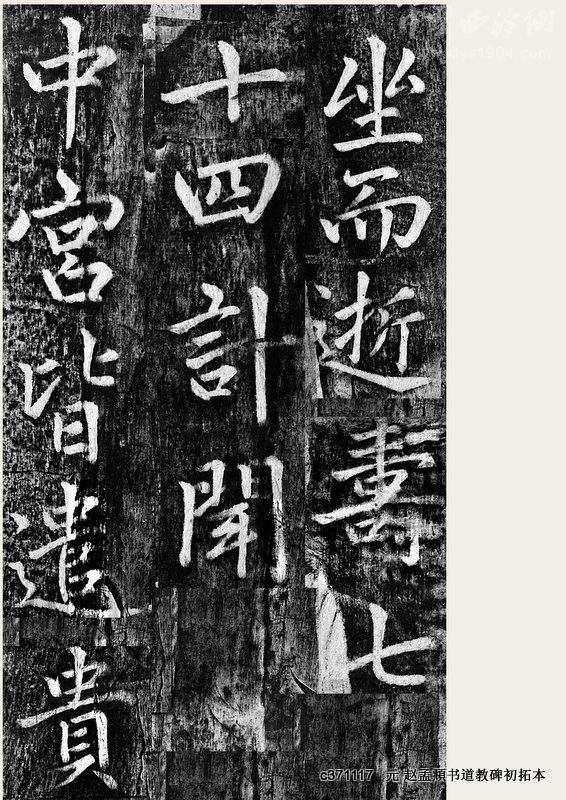 坐而逝壽七
十四計聞
中宮皆遣貴
c371117 元 赵孟頫书道教碑初拓本
西泠網
xlys1904.com